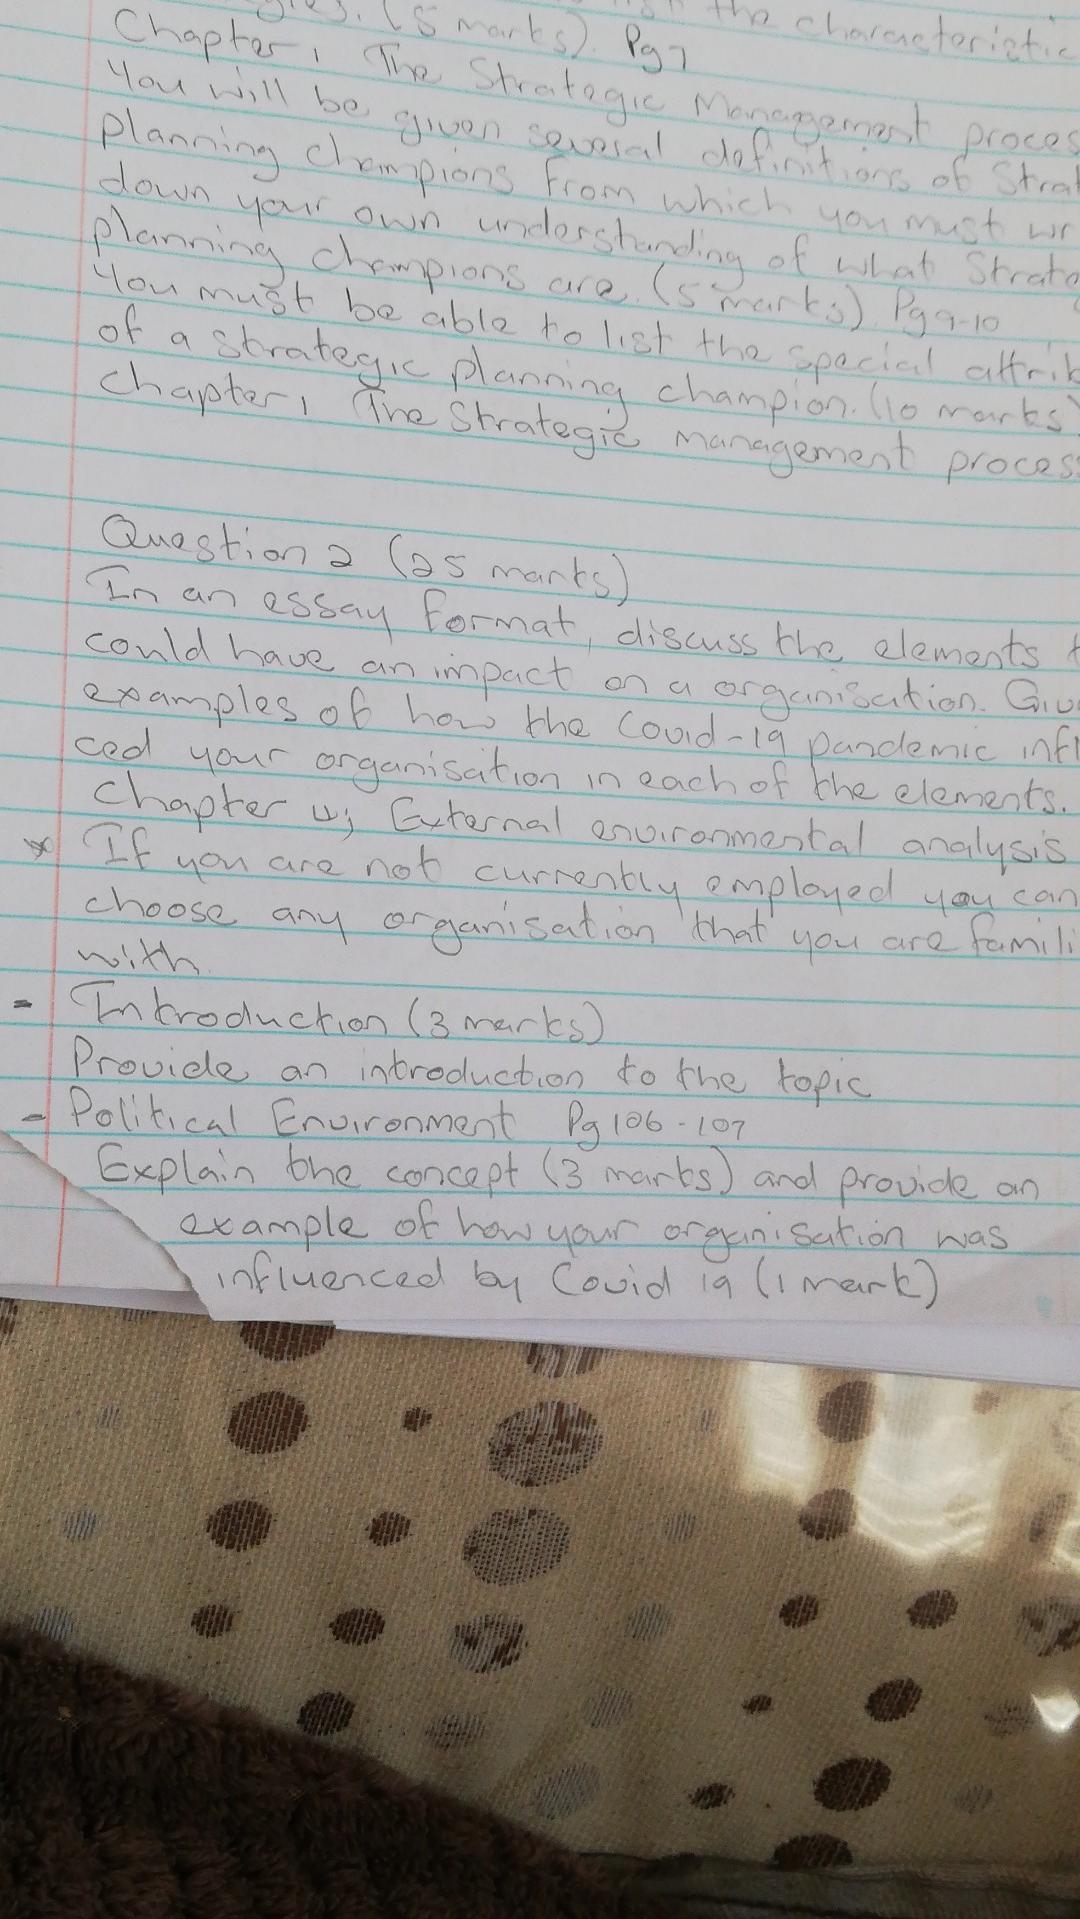 (5 marks). Pg7 the characteristic
Chapter 1 The Strategic Management proces
You will be given several definitions of Strat
planning champions from which you must wr
down your own understanding of what Strate
planning champions are. (5 marks) Pg 9-10
You must be able to list the special attrib
of a strategic planning champion. (10 marks)
Chapter 1 The Strategic management process
Question 2 (25 marks)
In an essay format, discuss the elements t
could have an impact on a organisation. Giv
examples of how the Covid-19 pandemic infl
ced your organisation in each of the elements.
Chapter 4; External environmental analysis
* If you are not currently employed you can
choose any organisation that you are famili
with.
- Introduction (3 marks)
Provide an introduction to the topic
- Political Environment Pg 106-107
Explain the concept (3 marks) and provide an
example of how your organisation was
influenced by Covid 19 (1 mark)